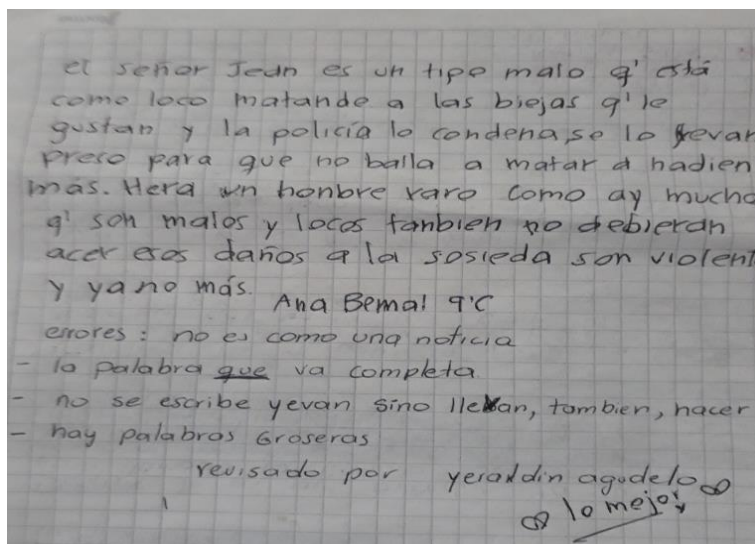 el señor Jean es un tipo malo q' está
como loco matande a las biejas q' le
gustan y la policía lo condena, se lo yevan
preso para que no balla a matar a nadien
más. Hera un honbre raro como ay mucho
q' son malos y locos tanbien no debieran
acer esos daños a la sosieda son violent
y ya no más. Ana Bernal 9°C
errores: no es como una noticia
- la palabra que va completa
- no se escribe yevan sino llevan, tambien, hacer
- hay palabras Groseras
revisado por yeraldin agudelo
lo mejor